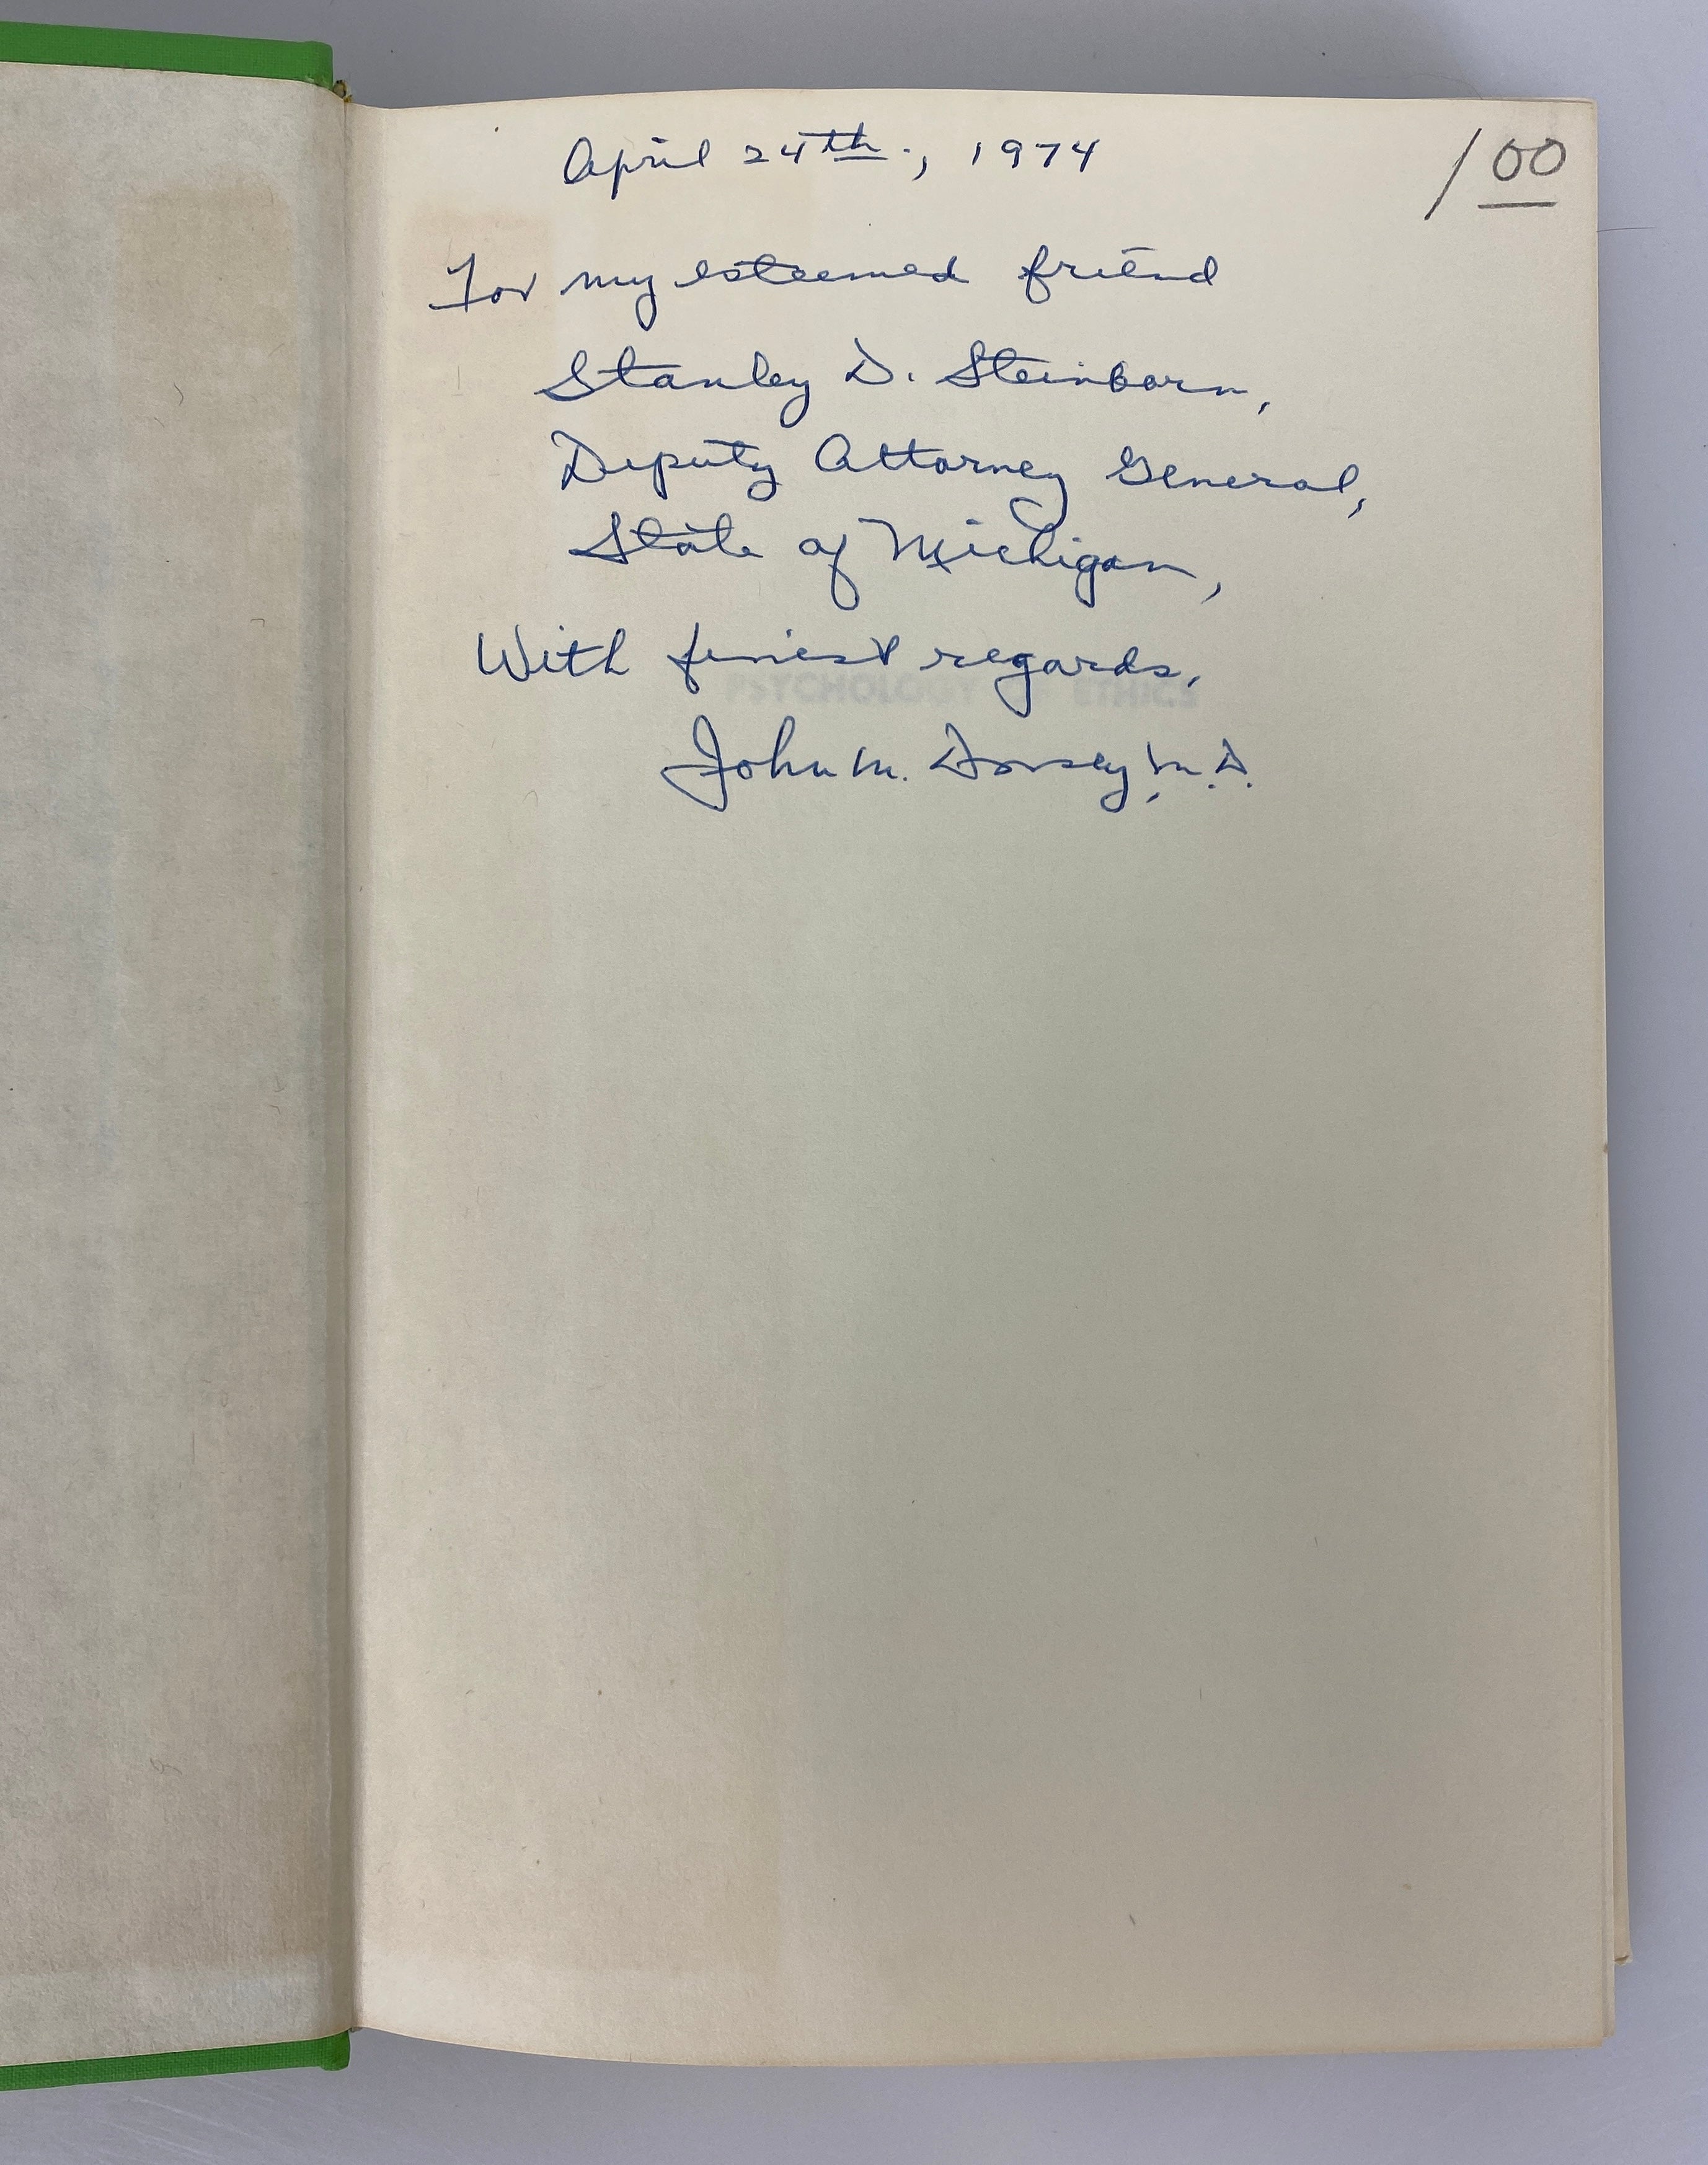 April 24th., 1974
100
For my esteemed friend
Stanley D. Steinborn,
Deputy Attorney General,
State of Michigan,
With finest regards,
PSYCHOLOGY OF ETHICS
John M. Dorsey, M.D.